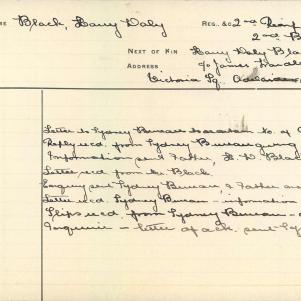 ME Black, Harry Daly REG. &C. 2nd Reinf
2nd B
NEXT OF KIN Harry Daly Bla
ADDRESS c/o James
Victoria Sq. Adelaide
Letter to Sydney Bureau to. of
Reply recd. from Sydney Bureau giving
Information sent Father, H D Blac
Letter recd from Mr Black
Enquiry sent Sydney Bureau, & Father an
Letter recd. Sydney Bureau – information
Slips recd. from Sydney Bureau –
Inquirie – letter of ack. sent Sy